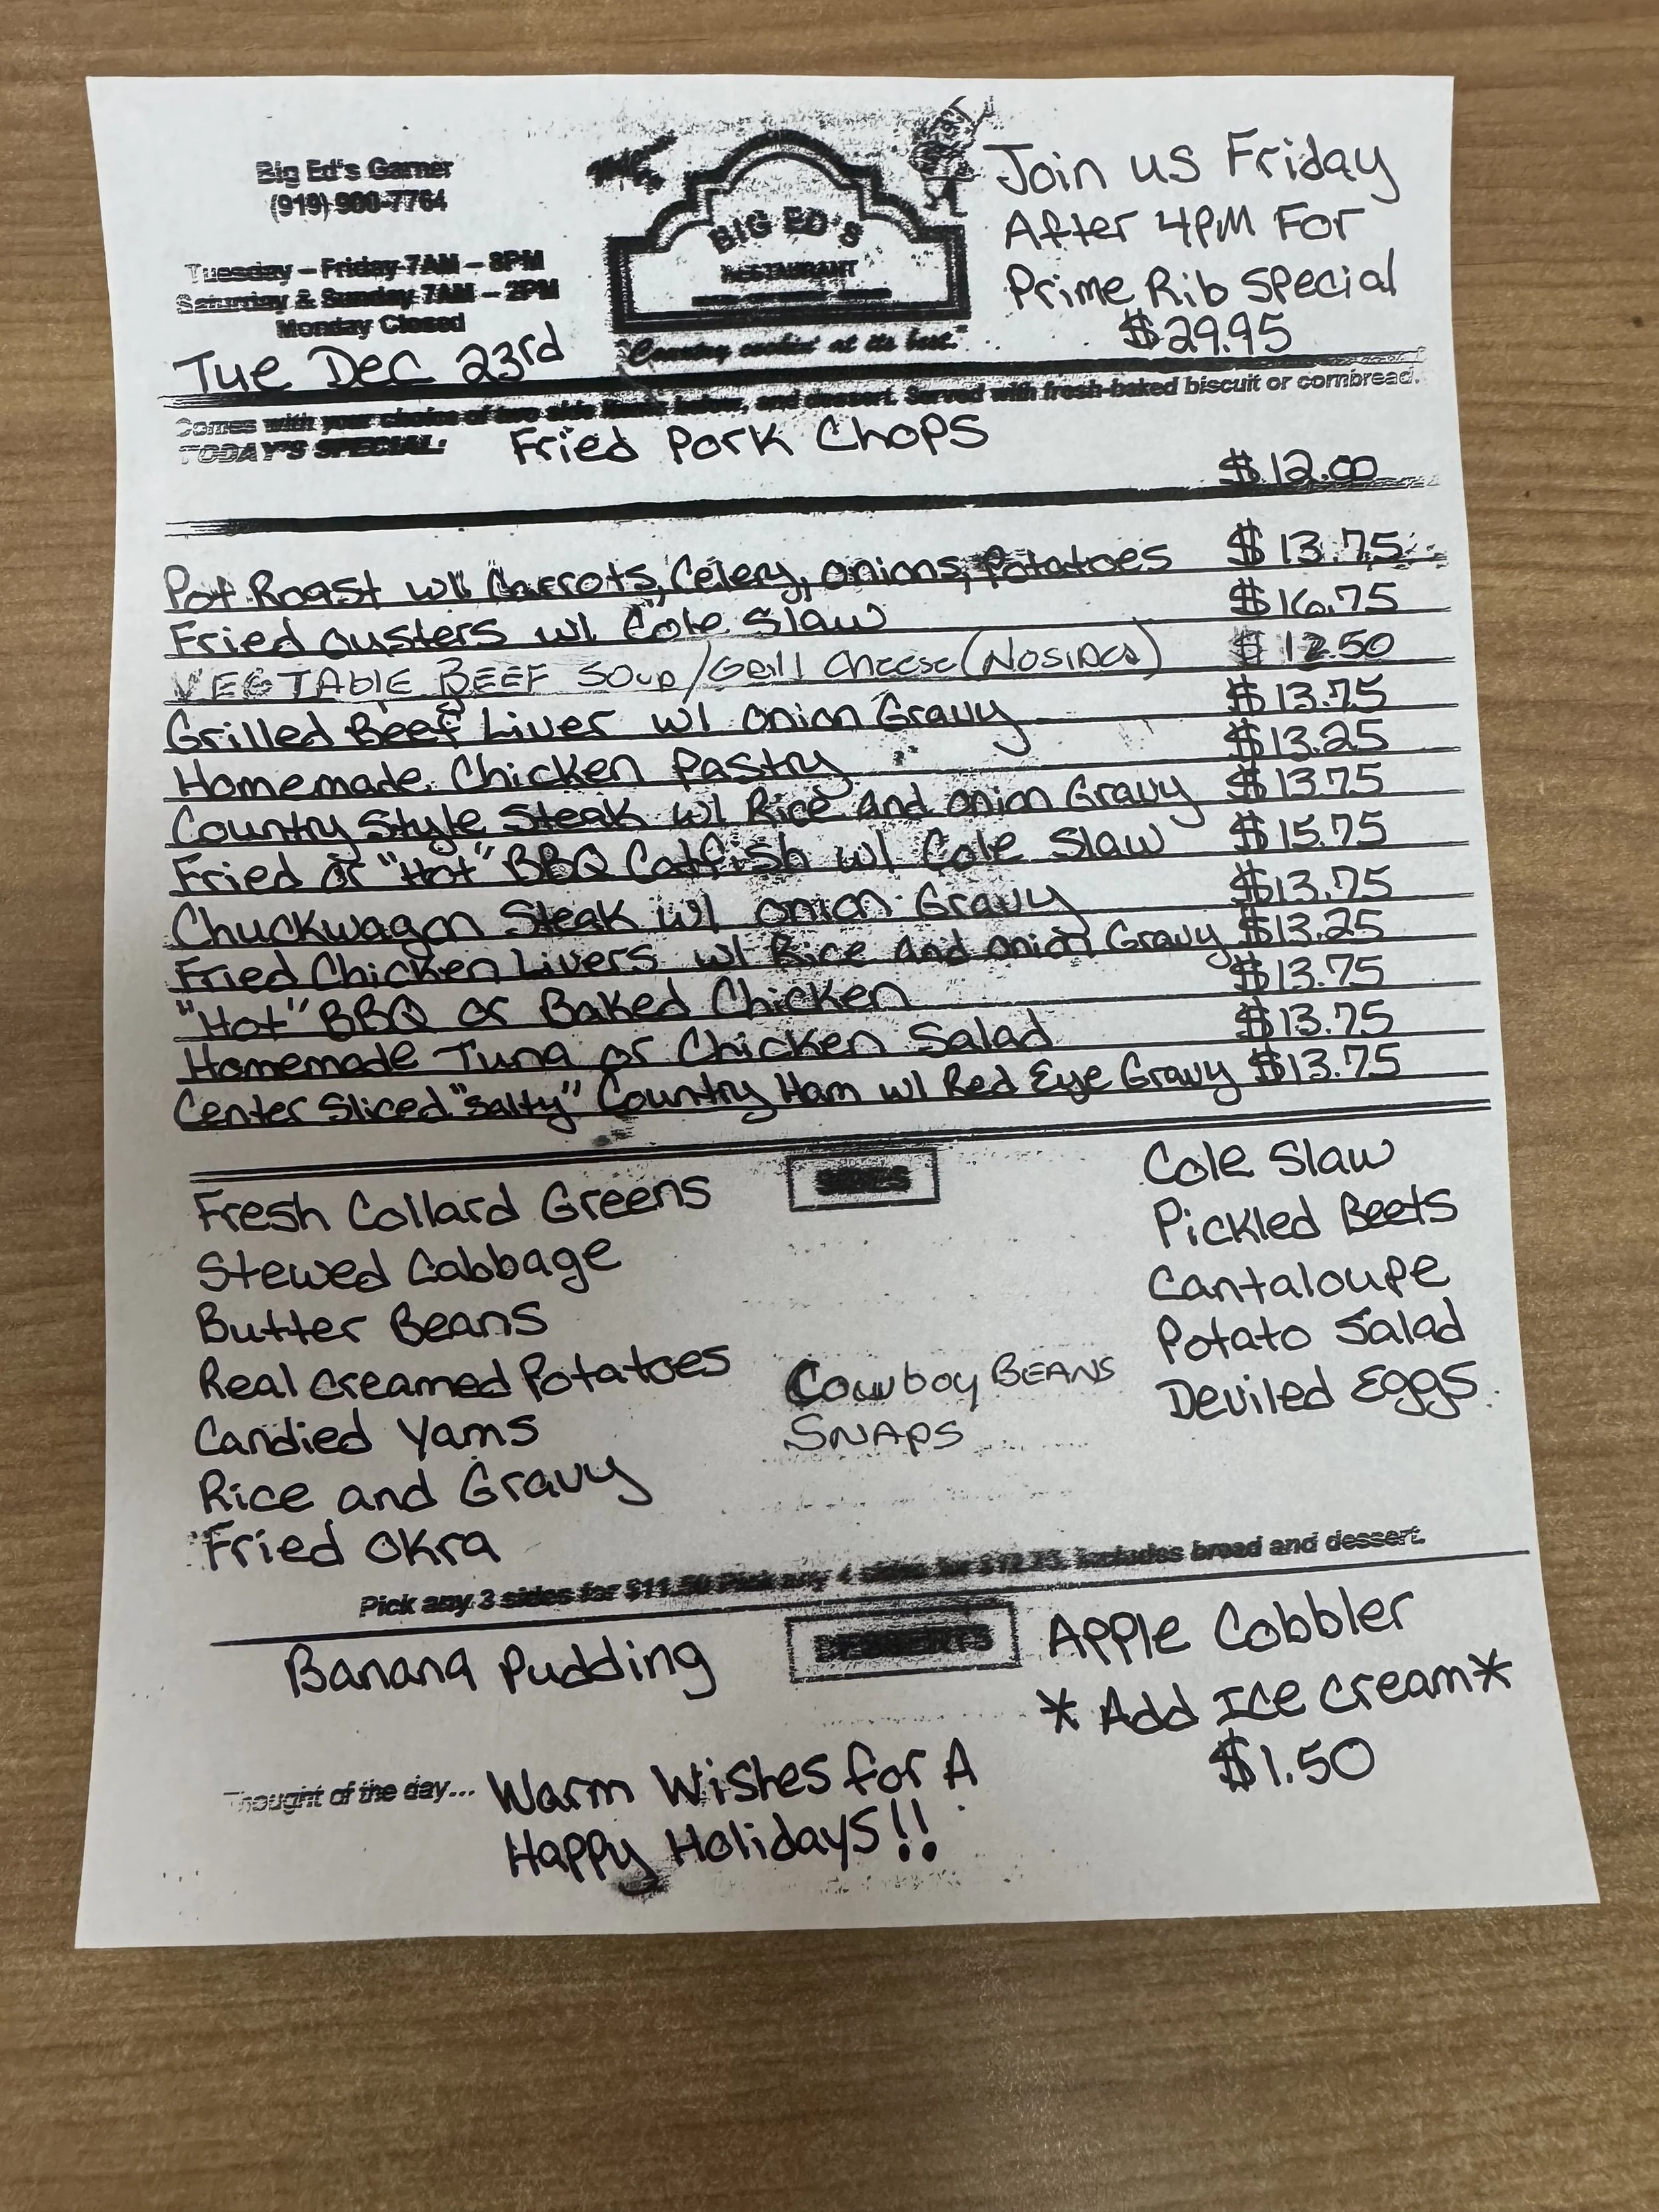 Big Ed's Garner
(919) 900-7764
Tuesday – Friday 7AM – 8PM
Saturday & Sunday 7AM – 2PM
Monday Closed
Tue Dec 23rd
BIG ED'S
RESTAURANT
"Country cookin' at its best."
Join us Friday
After 4PM For
Prime Rib Special
$29.95
Comes with your choice of two side items below, and dessert. Served with fresh-baked biscuit or cornbread.
TODAY'S SPECIAL: Fried Pork Chops
$12.00
Pot Roast w/ Carrots, Celery, onions, Potatoes $13.75
Fried Oysters w/ Cole Slaw $16.75
VEGTABLE BEEF SOup/Grill Cheese (NoSIDes) $12.50
Grilled Beef Liver w/ onion Gravy $13.75
Homemade Chicken Pastry $13.25
Country Style Steak w/ Rice and onion Gravy $13.75
Fried or "Hot" BBQ Catfish w/ Cole Slaw $15.75
Chuckwagon Steak w/ onion Gravy $13.75
Fried Chicken Livers w/ Rice and onion Gravy $13.25
"Hot" BBQ or Baked Chicken $13.75
Homemade Tuna or Chicken Salad $13.75
Center Sliced "Salty" Country Ham w/ Red Eye Gravy $13.75
SIDES
Fresh Collard Greens
Stewed Cabbage
Butter Beans
Real Creamed Potatoes
Candied Yams
Rice and Gravy
Fried Okra
Cowboy BEANS
SNAPS
Cole Slaw
Pickled Beets
Cantaloupe
Potato Salad
Deviled Eggs
Pick any 3 sides for $11.50 Pick any 4 sides for includes bread and dessert.
DESSERTS
Banana Pudding
Apple Cobbler
*Add Ice Cream*
$1.50
Thought of the day... Warm Wishes for A
Happy Holidays!!